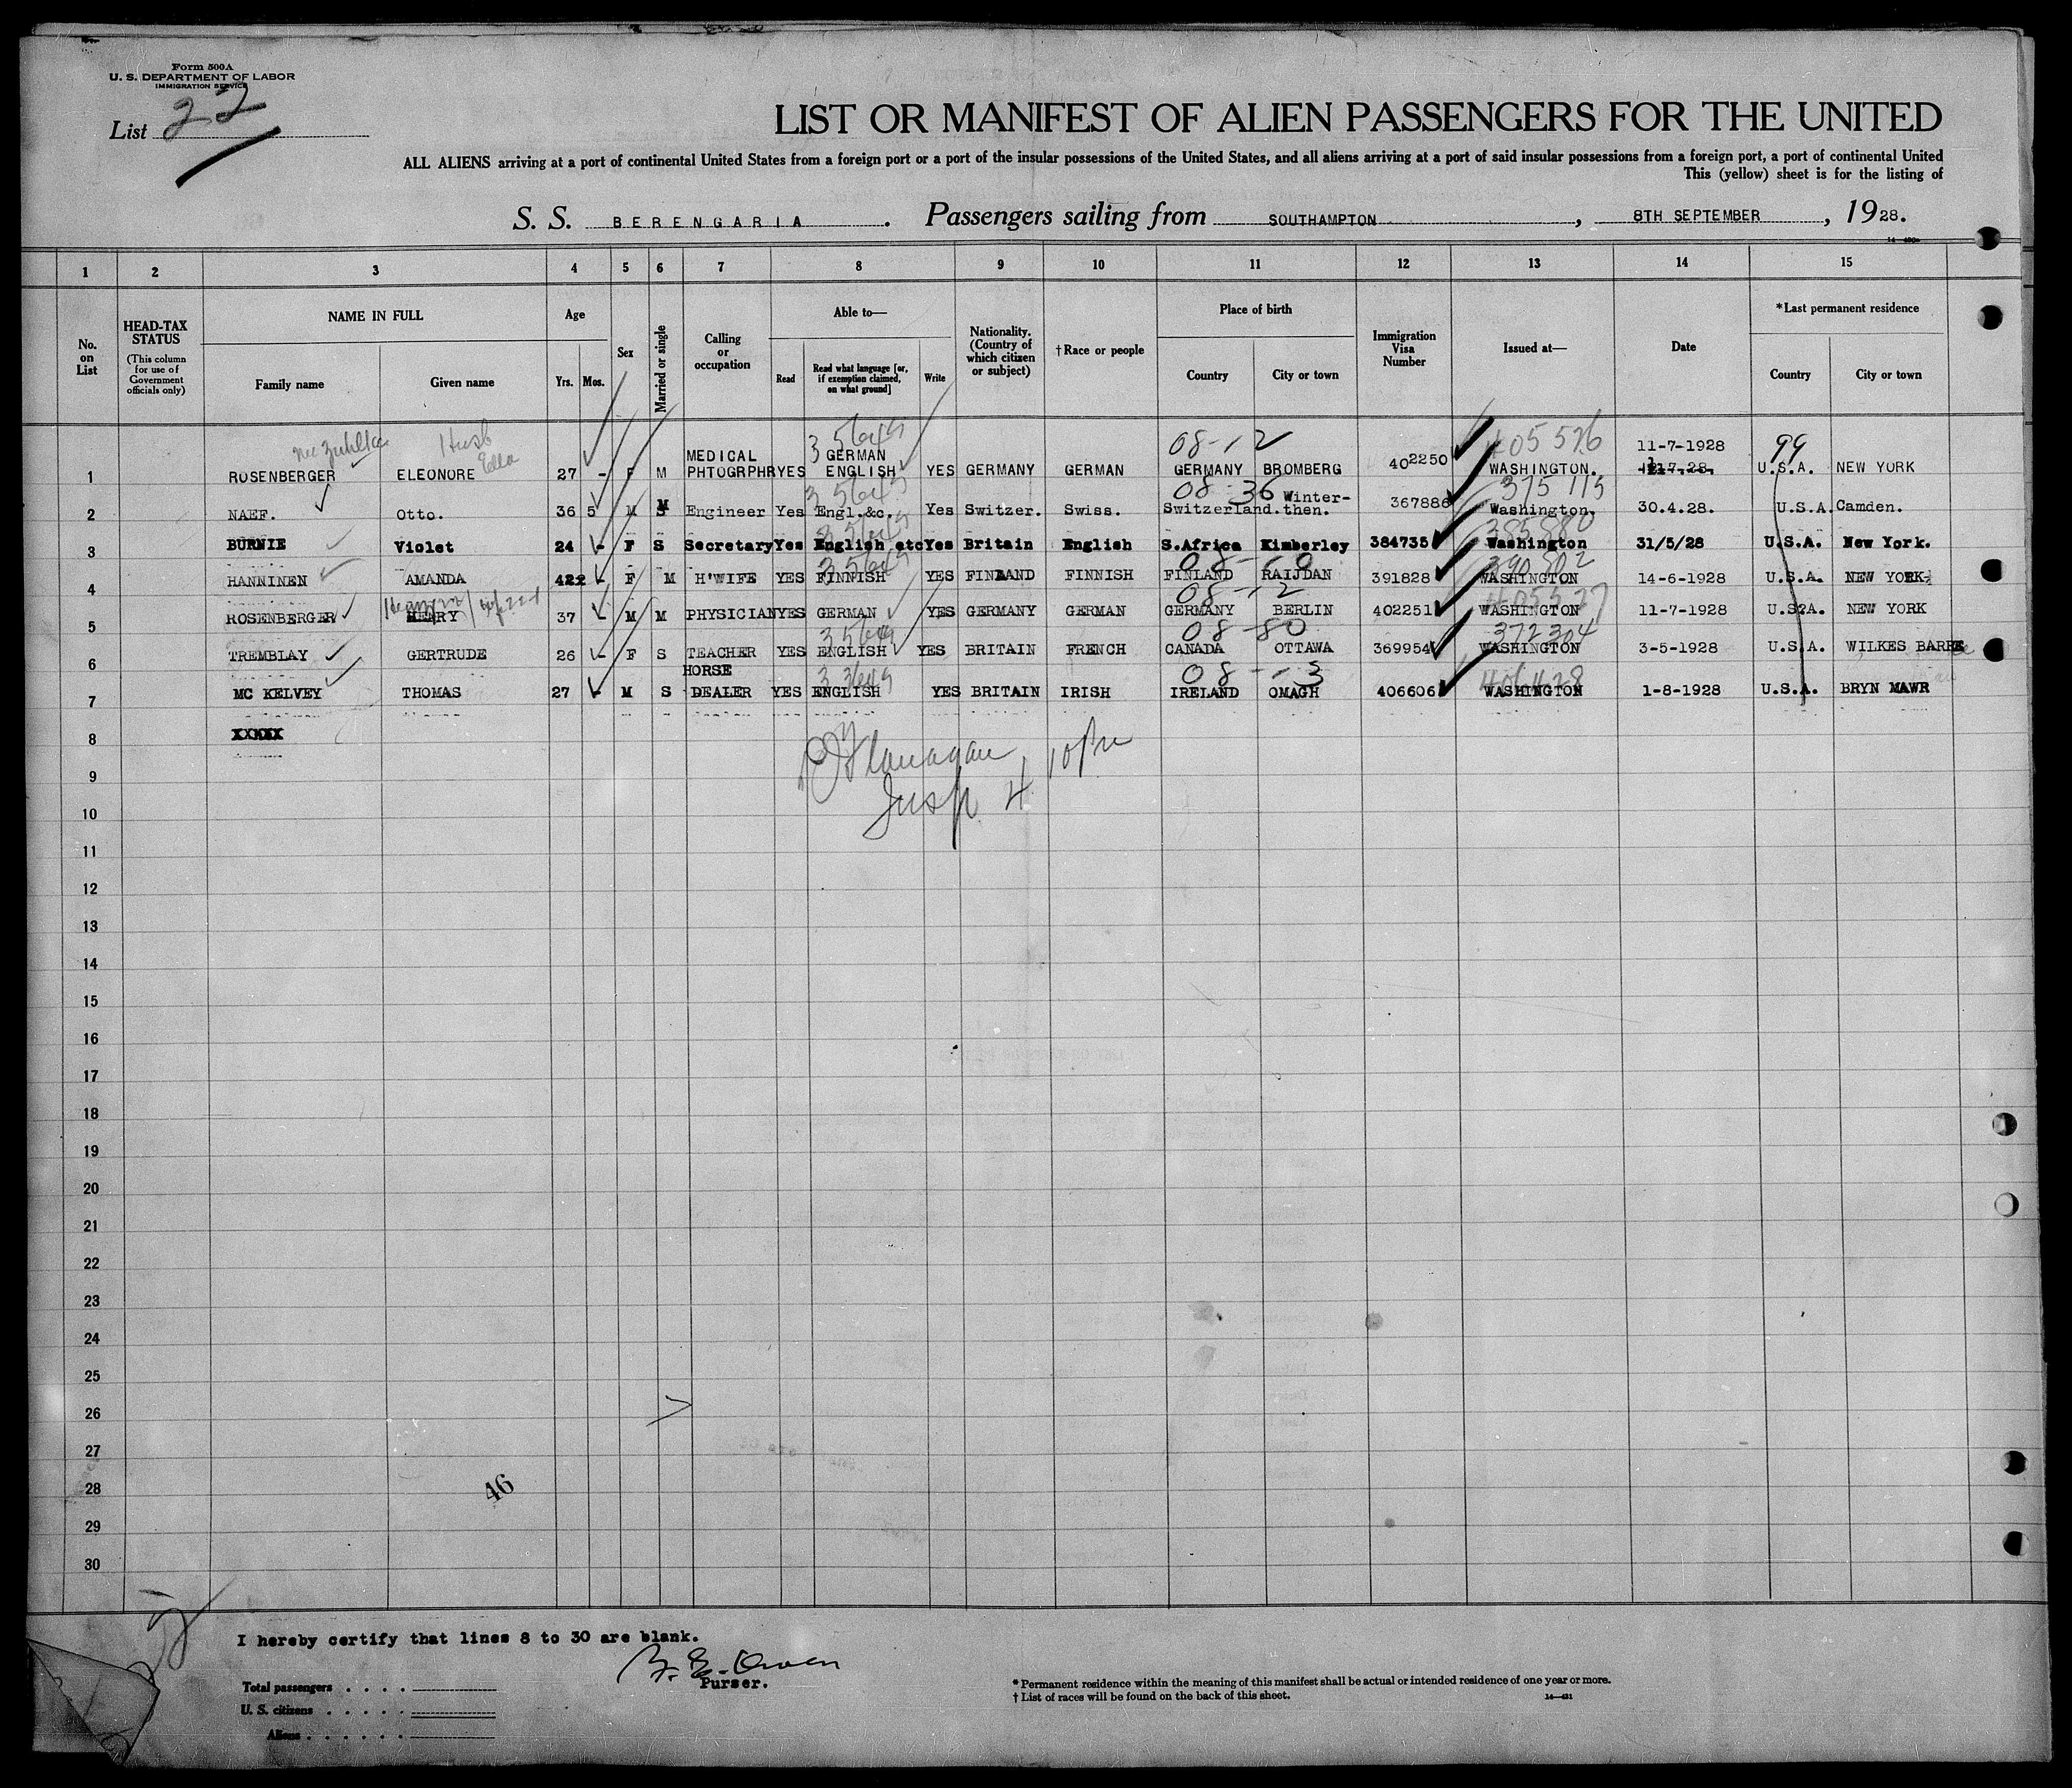 Form 500A
U. S. DEPARTMENT OF LABOR
IMMIGRATION SERVICE
List 22
LIST OR MANIFEST OF ALIEN PASSENGERS FOR THE UNITED
ALL ALIENS arriving at a port of continental United States from a foreign port or a port of the insular possessions of the United States, and all aliens arriving at a port of said insular possessions from a foreign port, a port of continental United
This (yellow) sheet is for the listing of
S. S. BERENGARIA. Passengers sailing from SOUTHAMPTON, 8TH SEPTEMBER, 1928.
1 2 3 4 5 6 7 8 9 10 11 12 13 14 15
No. on List
HEAD-TAX STATUS
(This column for use of Government officials only)
NAME IN FULL
Family name Given name
Age
Yrs. Mos.
Sex
Married or single
Calling or occupation
Able to—
Read Read what language [or, if exemption claimed, on what ground] Write
Nationality. (Country of which citizen or subject)
†Race or people
Place of birth
Country City or town
Immigration Visa Number
Issued at—
Date
*Last permanent residence
Country City or town
Husb 08-12 405526 11-7-1928 99
1 ROSENBERGER ELEONORE Ella 27 - F M MEDICAL PHTOGRPHR YES GERMAN ENGLISH YES GERMANY GERMAN GERMANY BROMBERG 402250 WASHINGTON. U.S.A. NEW YORK
08-36 375115
2 NAEF. Otto. 36 5 M S Engineer Yes Engl.&c. Yes Switzer. Swiss. Switzerland. Winter-then. 367886 Washington. 30.4.28. U.S.A. Camden.
385880
3 BURNIE Violet 24 - F S Secretary Yes English etc Yes Britain English S.Africa Kimberley 384735 Washington 31/5/28 U.S.A. New York.
390802
4 HANNINEN AMANDA 42 - F M H'WIFE YES FINNISH YES FINLAND FINNISH FINLAND RAIJDAN 391828 WASHINGTON 14-6-1928 U.S.A. NEW YORK
08-12 405527
5 ROSENBERGER HENRY 37 M M PHYSICIAN YES GERMAN YES GERMANY GERMAN GERMANY BERLIN 402251 WASHINGTON 11-7-1928 U.S.A. NEW YORK
08-80 372304
6 TREMBLAY GERTRUDE 26 - F S TEACHER YES ENGLISH YES BRITAIN FRENCH CANADA OTTAWA 369954 WASHINGTON 3-5-1928 U.S.A. WILKES BARRE
406428
7 MC KELVEY THOMAS 27 - M S HORSE DEALER YES ENGLISH YES BRITAIN IRISH IRELAND OMAGH 406606 WASHINGTON 1-8-1928 U.S.A. BRYN MAWR
8 XXXXX
Flanagan
Insp 4
9
10
11
12
13
14
15
16
17
18
19
20
21
22
23
24
25
26
27
28
46
29
30
I hereby certify that lines 8 to 30 are blank.
Purser.
Total passengers
U. S. citizens
Aliens
* Permanent residence within the meaning of this manifest shall be actual or intended residence of one year or more.
† List of races will be found on the back of this sheet.
14—431